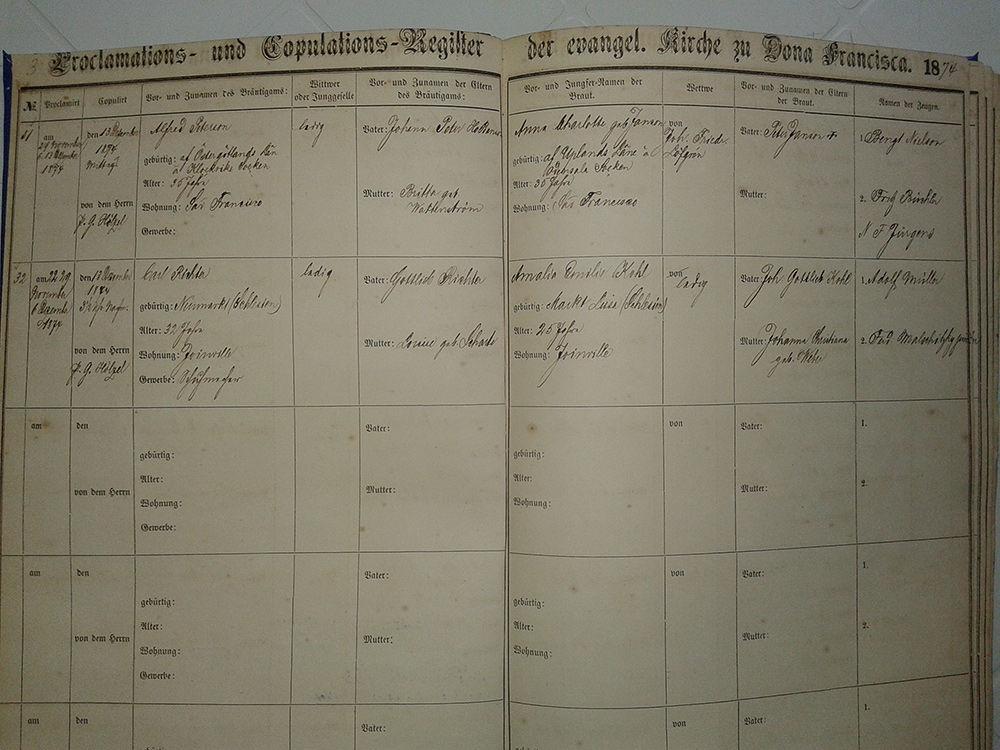 Proclamations- und Copulations-Register der evangel. Kirche zu Dona Francisca. 1874
№ Proclamirt Copulirt Vor- und Zunamen des Bräutigams: Wittwer oder Junggeselle Vor- und Zunamen der Eltern des Bräutigams: Vor- und Jungfer-Namen der Braut. Wettwe Vor- und Zunamen der Eltern der Braut. Namen der Zeugen.
am
1874
den 13 Dezember
1874
Mittag
von dem Herrn
P. G. Hölzel
Alfred Peterson
gebürtig: af Östergötlands Län
å Klockrike Socken
Alter: 35 Jahr
Wohnung: Sao Francisco
Gewerbe:
ledig
Vater: Johann Peter
Mutter: Britta geb
Anna Charlotte geb Janson
gebürtig: af Uplands Läne å
Socken
Alter: 35 Jahr
Wohnung: Sao Francisco
von
Joh. Friedr
Löfgrin
Vater: Peter Janson +
Mutter:
1. Bengt Nielson
2.
N F Jürgens
32
am 22 29
November
6 Dezember
1874
den 13 Dezember
1874
von dem Herrn
P. G. Hölzel
Carl Richter
gebürtig: Neumarkt (Schlesien)
Alter: 32 Jahr
Wohnung: Joinville
Gewerbe: Schuhmacher
ledig
Vater: Gottlieb Richter
Mutter: Louise geb Scharf
Amalie Emilie Kohl
gebürtig: Markt Lissa (Schlesien)
Alter: 25 Jahr
Wohnung: Joinville
von
ledig
Vater: Joh. Gottlieb Kohl
Mutter: Johanna Christiana
geb.
1. Adolf Müller
2. Ferd
am den
gebürtig:
Alter:
von dem Herrn
Wohnung:
Gewerbe:
Vater:
Mutter:
gebürtig:
Alter:
Wohnung:
von
Vater:
Mutter:
1.
2.
am den
gebürtig:
Alter:
von dem Herrn
Wohnung:
Gewerbe:
Vater:
Mutter:
gebürtig:
Alter:
Wohnung:
von
Vater:
Mutter:
1.
2.
am den
Vater:
von
Vater:
1.